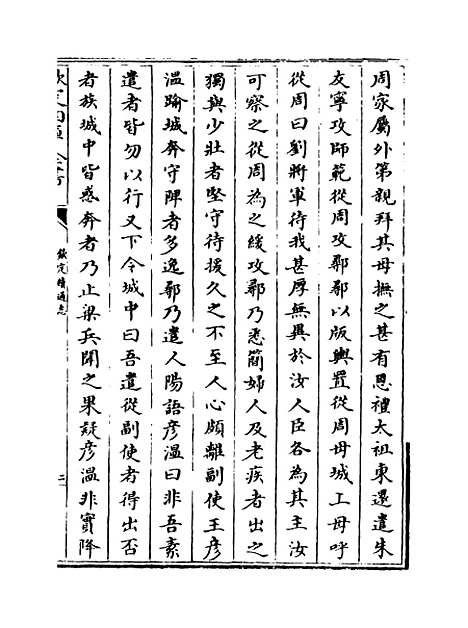 周家屬外第親拜其母撫之甚有恩禮太祖東還遣朱
友寧攻師範從周攻鄩鄩以版輿置從周母城上母呼
從周曰劉將軍待我甚厚無異於汝人臣各為其主汝
可察之從周為之緩攻鄩乃悉簡婦人及老疾者出之
獨與少壯者堅守待援久之不至人心頗離副使王彥
溫踰城奔守陴者多逸鄩乃遣人陽語彥溫曰非吾素
遣者皆勿以行又下令城中曰吾遣從副使者得出否
者族城中皆惑奔者乃止梁兵聞之果疑彥溫非實降
欽定四庫全書
欽定續通志